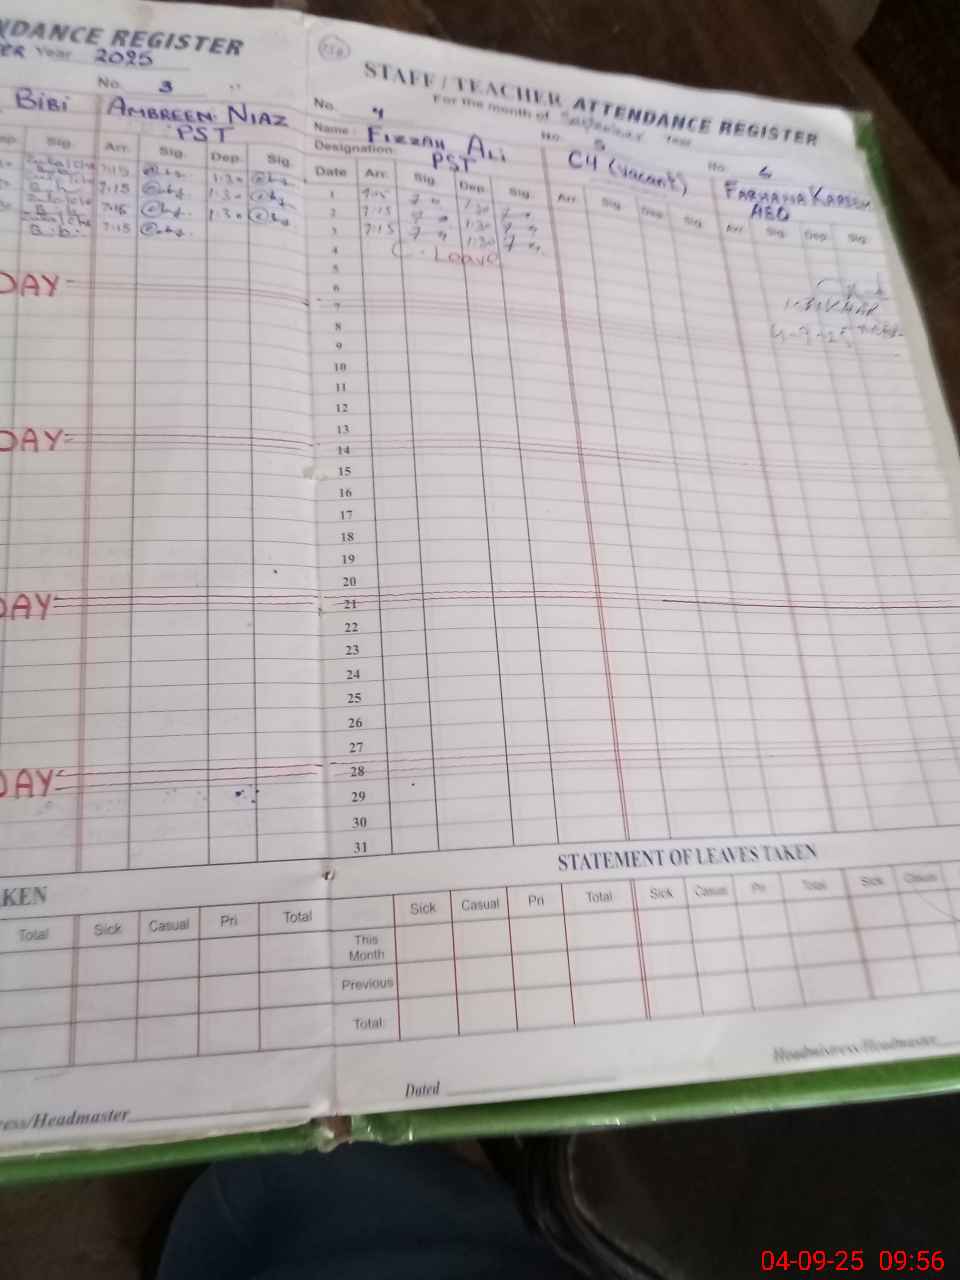 NDANCE REGISTER
Year 2025
No. 3
BIBI AMBREEN NIAZ
PST
Sig. Arr. Sig. Dep. Sig.
7:15 1:30
7:15 1:30
7:15 1:30
Bibi 7:15
DAY
DAY
DAY
DAY
KEN
Total Sick Casual Pri Total
ress/Headmaster
STAFF / TEACHER ATTENDANCE REGISTER
For the month of September Year
No. 4
Name: FIZZAH ALI
Designation: PST
No. 5
C4 (Vacant)
No. 6
FARHANA KAREEM
AEO
Date Arr. Sig. Dep. Sig. Arr. Sig. Dep. Sig. Arr. Sig. Dep. Sig.
1 7:15 1:30
2 7:15 1:30
3 7:15 1:30
4 Leave
5
6
7
8
9
10
11
12
13
14
15
16
17
18
19
20
21
22
23
24
25
26
27
28
29
30
31
STATEMENT OF LEAVES TAKEN
Sick Casual Pri Total Sick Casual Pri Total Sick Casual
This Month
Previous
Total:
Dated
Headmistress/Headmaster
04-09-25 09:56